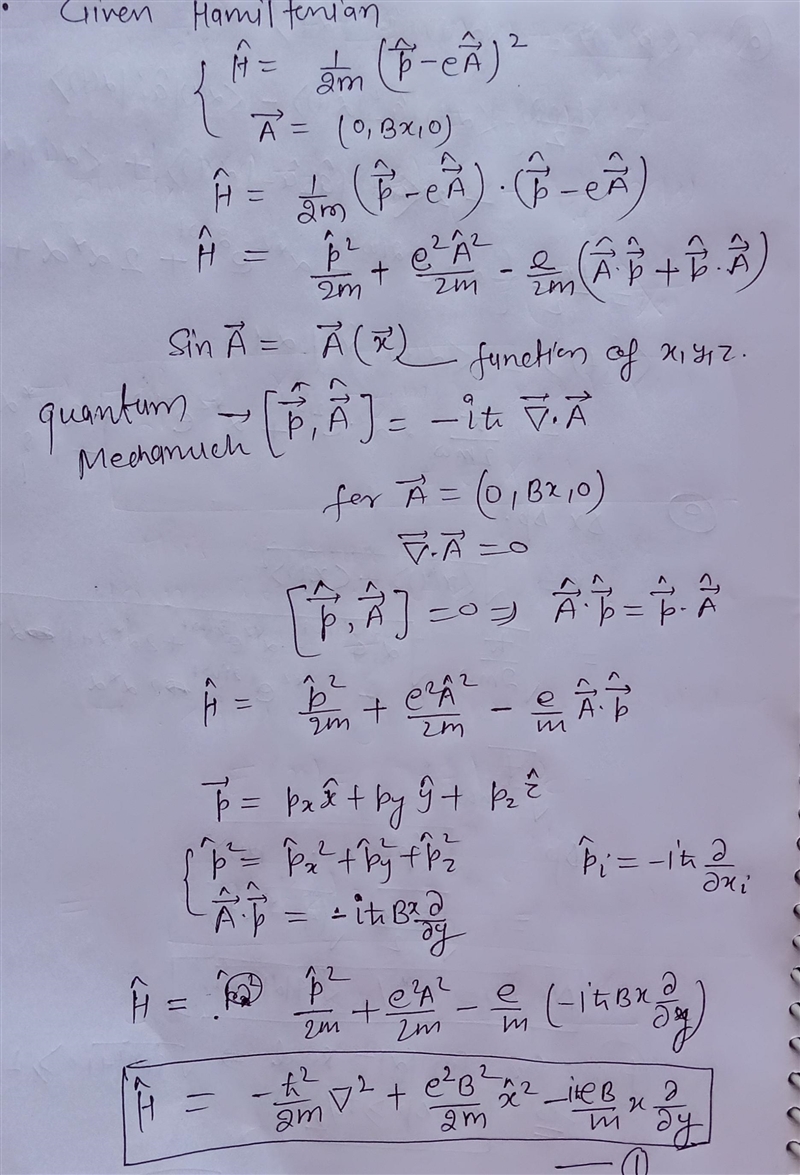 • Given Hamiltenian
Ĥ = 1/2m (p̂⃗ - eÂ⃗)²
A⃗ = (0, Bx, 0)
Ĥ = 1/2m (p̂⃗ - eÂ⃗) · (p̂⃗ - eÂ⃗)
Ĥ = p̂²/2m + e²Â²/2m - e/2m (Â⃗·p̂⃗ + p̂⃗·Â⃗)
Sin A⃗ = A⃗(x⃗) function of x, y, z.
quantum Mechanuch → [p̂⃗, Â⃗] = -iħ ∇⃗·A⃗
fer A⃗ = (0, Bx, 0)
∇⃗·A⃗ = 0
[p̂⃗, Â⃗] = 0 ⇒ Â⃗·p̂⃗ = p̂⃗·Â⃗
Ĥ = p̂²/2m + e²Â²/2m - e/m Â⃗·p̂⃗
p⃗ = px x̂ + py ŷ + pz ẑ
p̂² = p̂x² + p̂y² + p̂z² p̂i = -iħ ∂/∂xi
Â⃗·p̂⃗ = -iħBx ∂/∂y
Ĥ = p̂²/2m + e²A²/2m - e/m (-iħBx ∂/∂y)
Ĥ = -ħ²/2m ∇² + e²B²/2m x̂² - iħeB/m x ∂/∂y
— ①